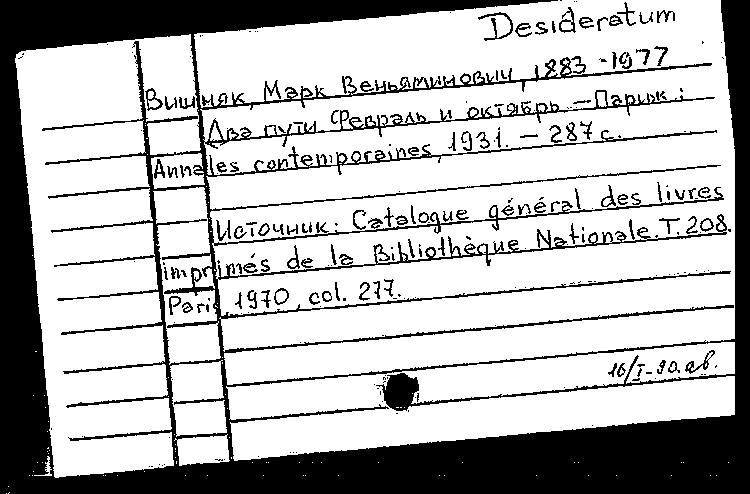 Desideratum
Вишняк, Марк Веньяминович, 1883-1977
Два пути Февраль и октябрь. — Париж:
Annales contemporaines, 1931. — 287 с.
Источник: Catalogue général des livres
imprimés de la Bibliothèque Nationale. T. 208.
Paris, 1970, col. 277.
16/I-90. ав.